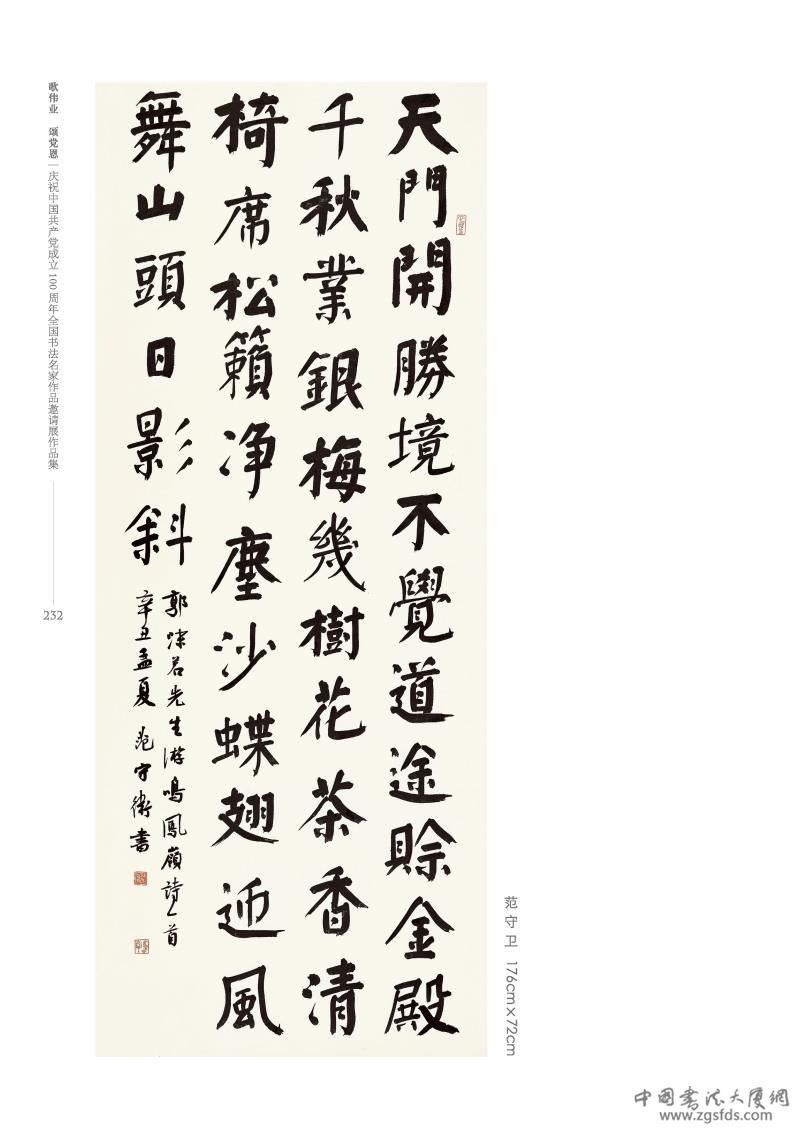 天門開勝境不覺道途賒金殿
千秋業銀梅幾樹花茶香清
椅席松籟净塵沙蝶翅迎風
舞山頭日影斜
郭沫若先生游鳴鳳嶺詩一首
辛丑孟夏 范守衛書
歌伟业 颂党恩 | 庆祝中国共产党成立100周年全国书法名家作品邀请展作品集
232
范守卫 176cm×72cm
中国书法大厦網
www.zgsfds.com